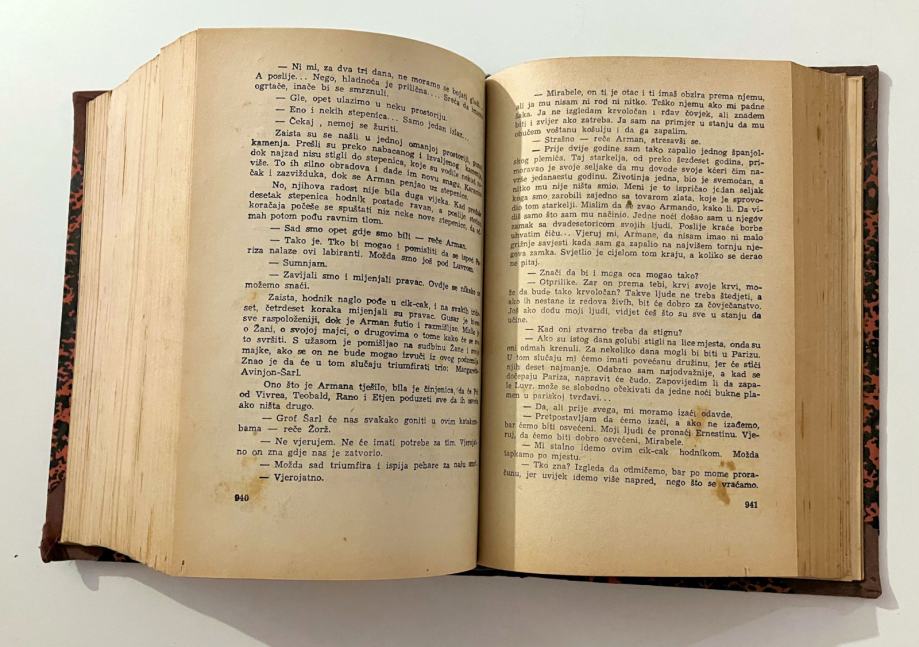 — Ni mi, za dva tri dana, ne moramo se bojati gladi.
A poslije... Nego, hladnoća je prilična.... Sreća da imamo
ogrtače, inače bi se smrznuli.
— Gle, opet ulazimo u neku prostoriju.
— Eno i nekih stepenica... Samo jedan izlaz...
— Čekaj, nemoj se žuriti.
Zaista su se našli u jednoj omanjoj prostoriji, punoj
kamenja. Prešli su preko nabacanog i izvaljenog kamenja
dok najzad nisu stigli do stepenica, koje su vodile nekud na
više. To ih silno obradova i dade im novu snagu.
čak i zazvižduka, dok se Arman penjao uz stepenice.
No, njihova radost nije bila duga vijeka. Kad
desetak stepenica hodnik postade ravan, a poslije
koračaja počeše se spuštati niz neke nove stepenice, da
mah potom pođu ravnim tlom.
— Sad smo opet gdje smo bili — reče Arman.
— Tako je. Tko bi mogao i pomisliti da se ispod Pa-
riza nalaze ovi labiranti. Možda smo još pod Luvrom.
— Sumnjam.
— Zavijali smo i mijenjali pravac. Ovdje se nikako ne
možemo snaći.
Zaista, hodnik naglo pođe u cik-cak, i na svakih tride-
set, četrdeset koraka mijenjali su pravac. Gusar je
sve raspoloženiji, dok je Arman šutio i razmišljao. Mislio je
o Žani, o svojoj majci, o drugovima o tome kako će se sve
to svršiti. S užasom je pomišljao na sudbinu Žane i svoje
majke, ako se on ne bude mogao izvući iz ovog podzemlja.
Znao je da će u tom slučaju triumfirati trio: Margareta-
Avinjon-Šarl.
Ono što je Armana tješilo, bila je činjenica, da će
od Vivrea, Teobald, Rano i Etjen poduzeti sve da ih
ako ništa drugo.
— Grof Šarl će nas svakako goniti u ovim katakom-
bama — reče Žorž.
— Ne vjerujem. Ne će imati potrebe za tim. Vjerojat-
no on zna gdje nas je zatvorio.
— Možda sad triumfira i ispija pehare za našu smrt.
— Vjerojatno.
940
— Mirabele, on ti je otac i ti imaš obzira prema njemu,
ali ja mu nisam ni rod ni nitko. Teško njemu ako mi padne
šaka. Ja ne izgledam krvoločan i rđav čovjek, ali znadem
biti i zvijer ako zatreba. Ja sam na primjer u stanju da mu
obučem voštanu košulju i da ga zapalim.
— Strašno — reče Arman, stresavši se.
— Prije dvije godine sam tako zapalio jednog španjol-
skog plemića. Taj starkelja, od preko šezdeset godina, pri-
moravao je svoje seljake da mu dovode svoje kćeri čim na-
vrše jedanaestu godinu. Životinja jedna, bio je svemoćan, a
nitko mu nije ništa smio. Meni je to ispričao jedan seljak
koga smo zarobili zajedno sa tovarom zlata, koje je sprovo-
dio tom starkelji. Mislim da se zvao Armando, kako li. Da vi-
diš samo što sam mu načinio. Jedne noći došao sam u njegov
zamak sa dvadesetoricom svojih ljudi. Poslije kraće borbe
uhvatim čiču... Vjeruj mi, Armane, da nisam imao ni malo
grižnje savjesti kada sam ga zapalio na najvišem tornju nje-
gova zamka. Svjetlio je cijelom tom kraju, a koliko se derao
ne pitaj.
— Znači da bi i moga oca mogao tako?
— Otprilike. Zar on prema tebi, krvi svoje krvi, mo-
že da bude tako krvoločan? Takve ljude ne treba štedjeti, a
ako ih nestane iz redova živih, bit će dobro za čovječanstvo.
Još ako dođu moji ljudi, vidjet ćeš što su sve u stanju da
učine.
— Kad oni stvarno treba da stignu?
— Ako su istog dana golubi stigli na lice mjesta, onda su
oni odmah krenuli. Za nekoliko dana mogli bi biti u Parizu.
U tom slučaju mi ćemo imati povećanu družinu, jer će stići
njih deset najmanje. Odabrao sam najodvažnije, a kad se
dočepaju Pariza, napravit će čudo. Zapovijedim li da zapa-
le Luvr, može se slobodno očekivati da jedne noći bukne pla-
men u pariskoj tvrđavi...
— Da, ali prije svega, mi moramo izaći odavde.
— Pretpostavljam da ćemo izaći, a ako ne izađemo,
bar ćemo biti osvećeni. Moji ljudi će pronaći Ernestinu. Vje-
ruj, da ćemo biti dobro osvećeni, Mirabele.
— Mi stalno idemo ovim cik-cak hodnikom. Možda
tapkamo po mjestu.
— Tko zna? Izgleda da odmičemo, bar po mome prora-
čunu, jer uvijek idemo više napred, nego što se vraćamo.
941